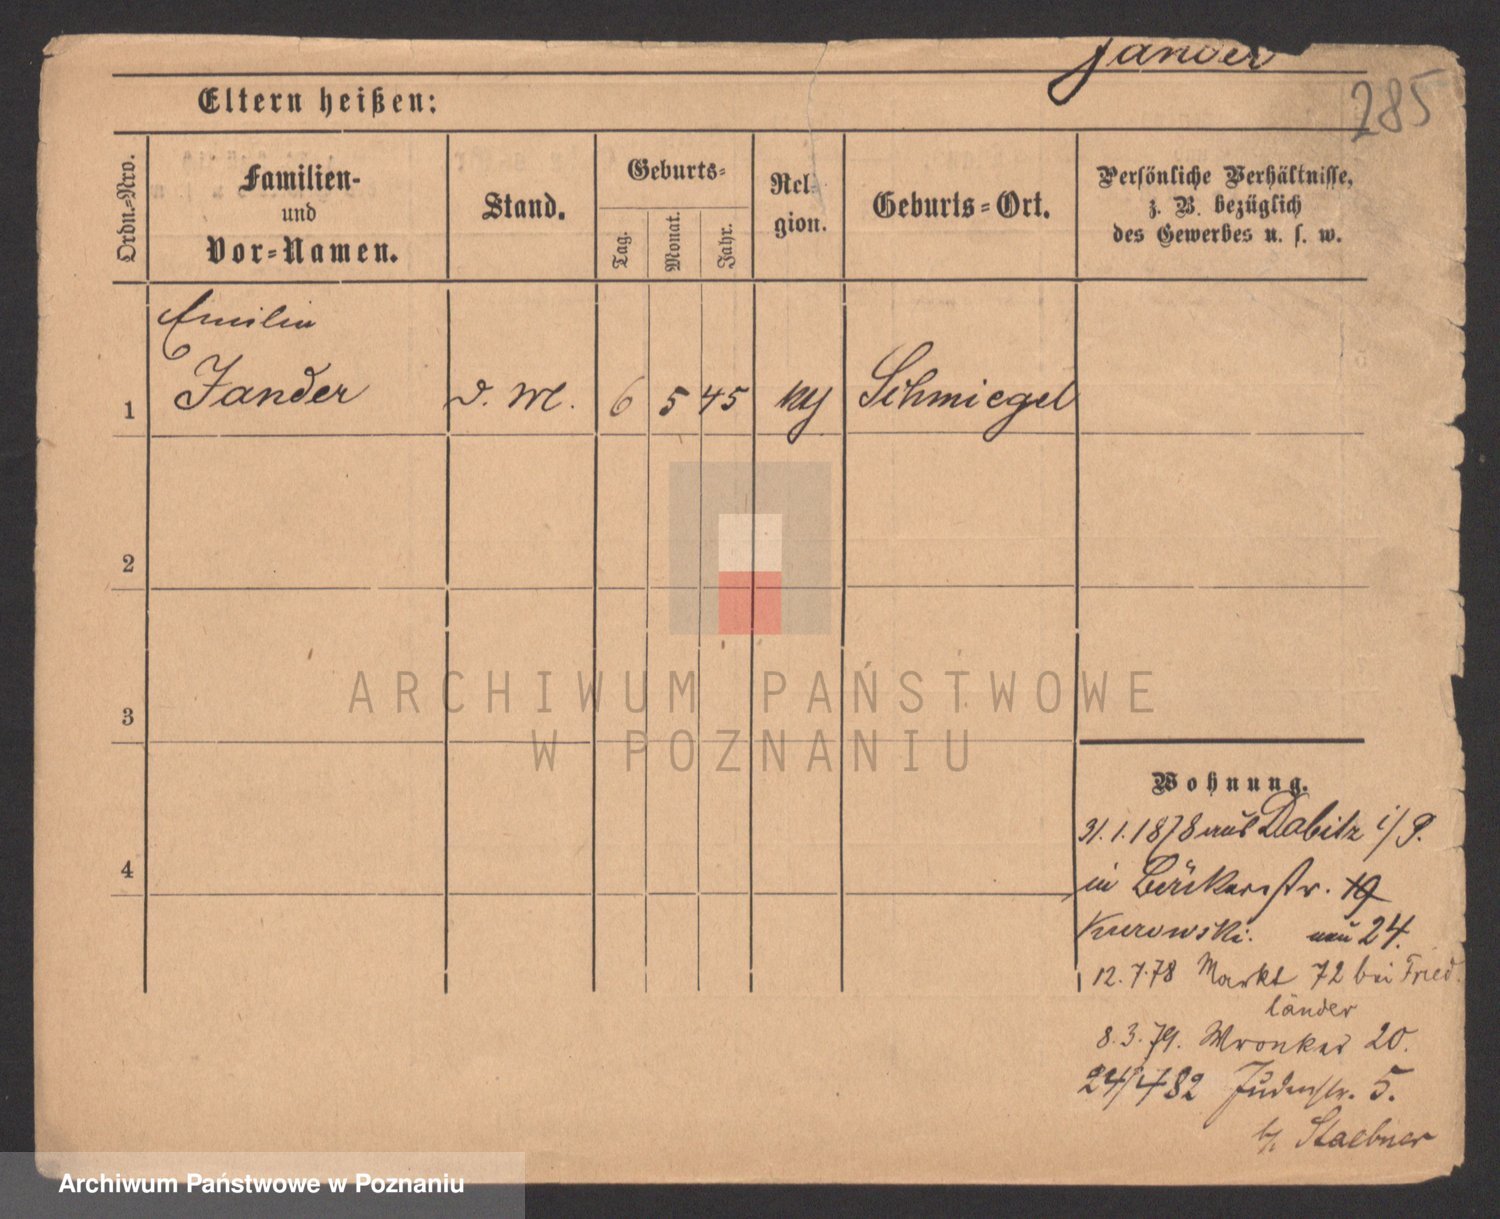 Jander
285
Eltern heißen:
Ordn.-Nro.
Familien-
und
Vor-Namen.
Stand.
Geburts-
Tag.
Monat.
Jahr.
Religion.
Geburts-Ort.
Persönliche Verhältnisse,
z. B. bezüglich
des Gewerbes u. s. w.
Emilie
1 Jander d. M. 6 5 45 Schmiegel
2
3
4
ARCHIWUM PAŃSTWOWE
W POZNANIU
Wohnung.
31.1.1878 aus Dabitz i/P.
in Bäckerstr. 19
Kurowski. neu 24.
12.7.78 Markt 72 bei Fried
länder
8.3.79. Wronker 20.
24/4 82 Judenstr. 5.
b/ Staebner
Archiwum Państwowe w Poznaniu